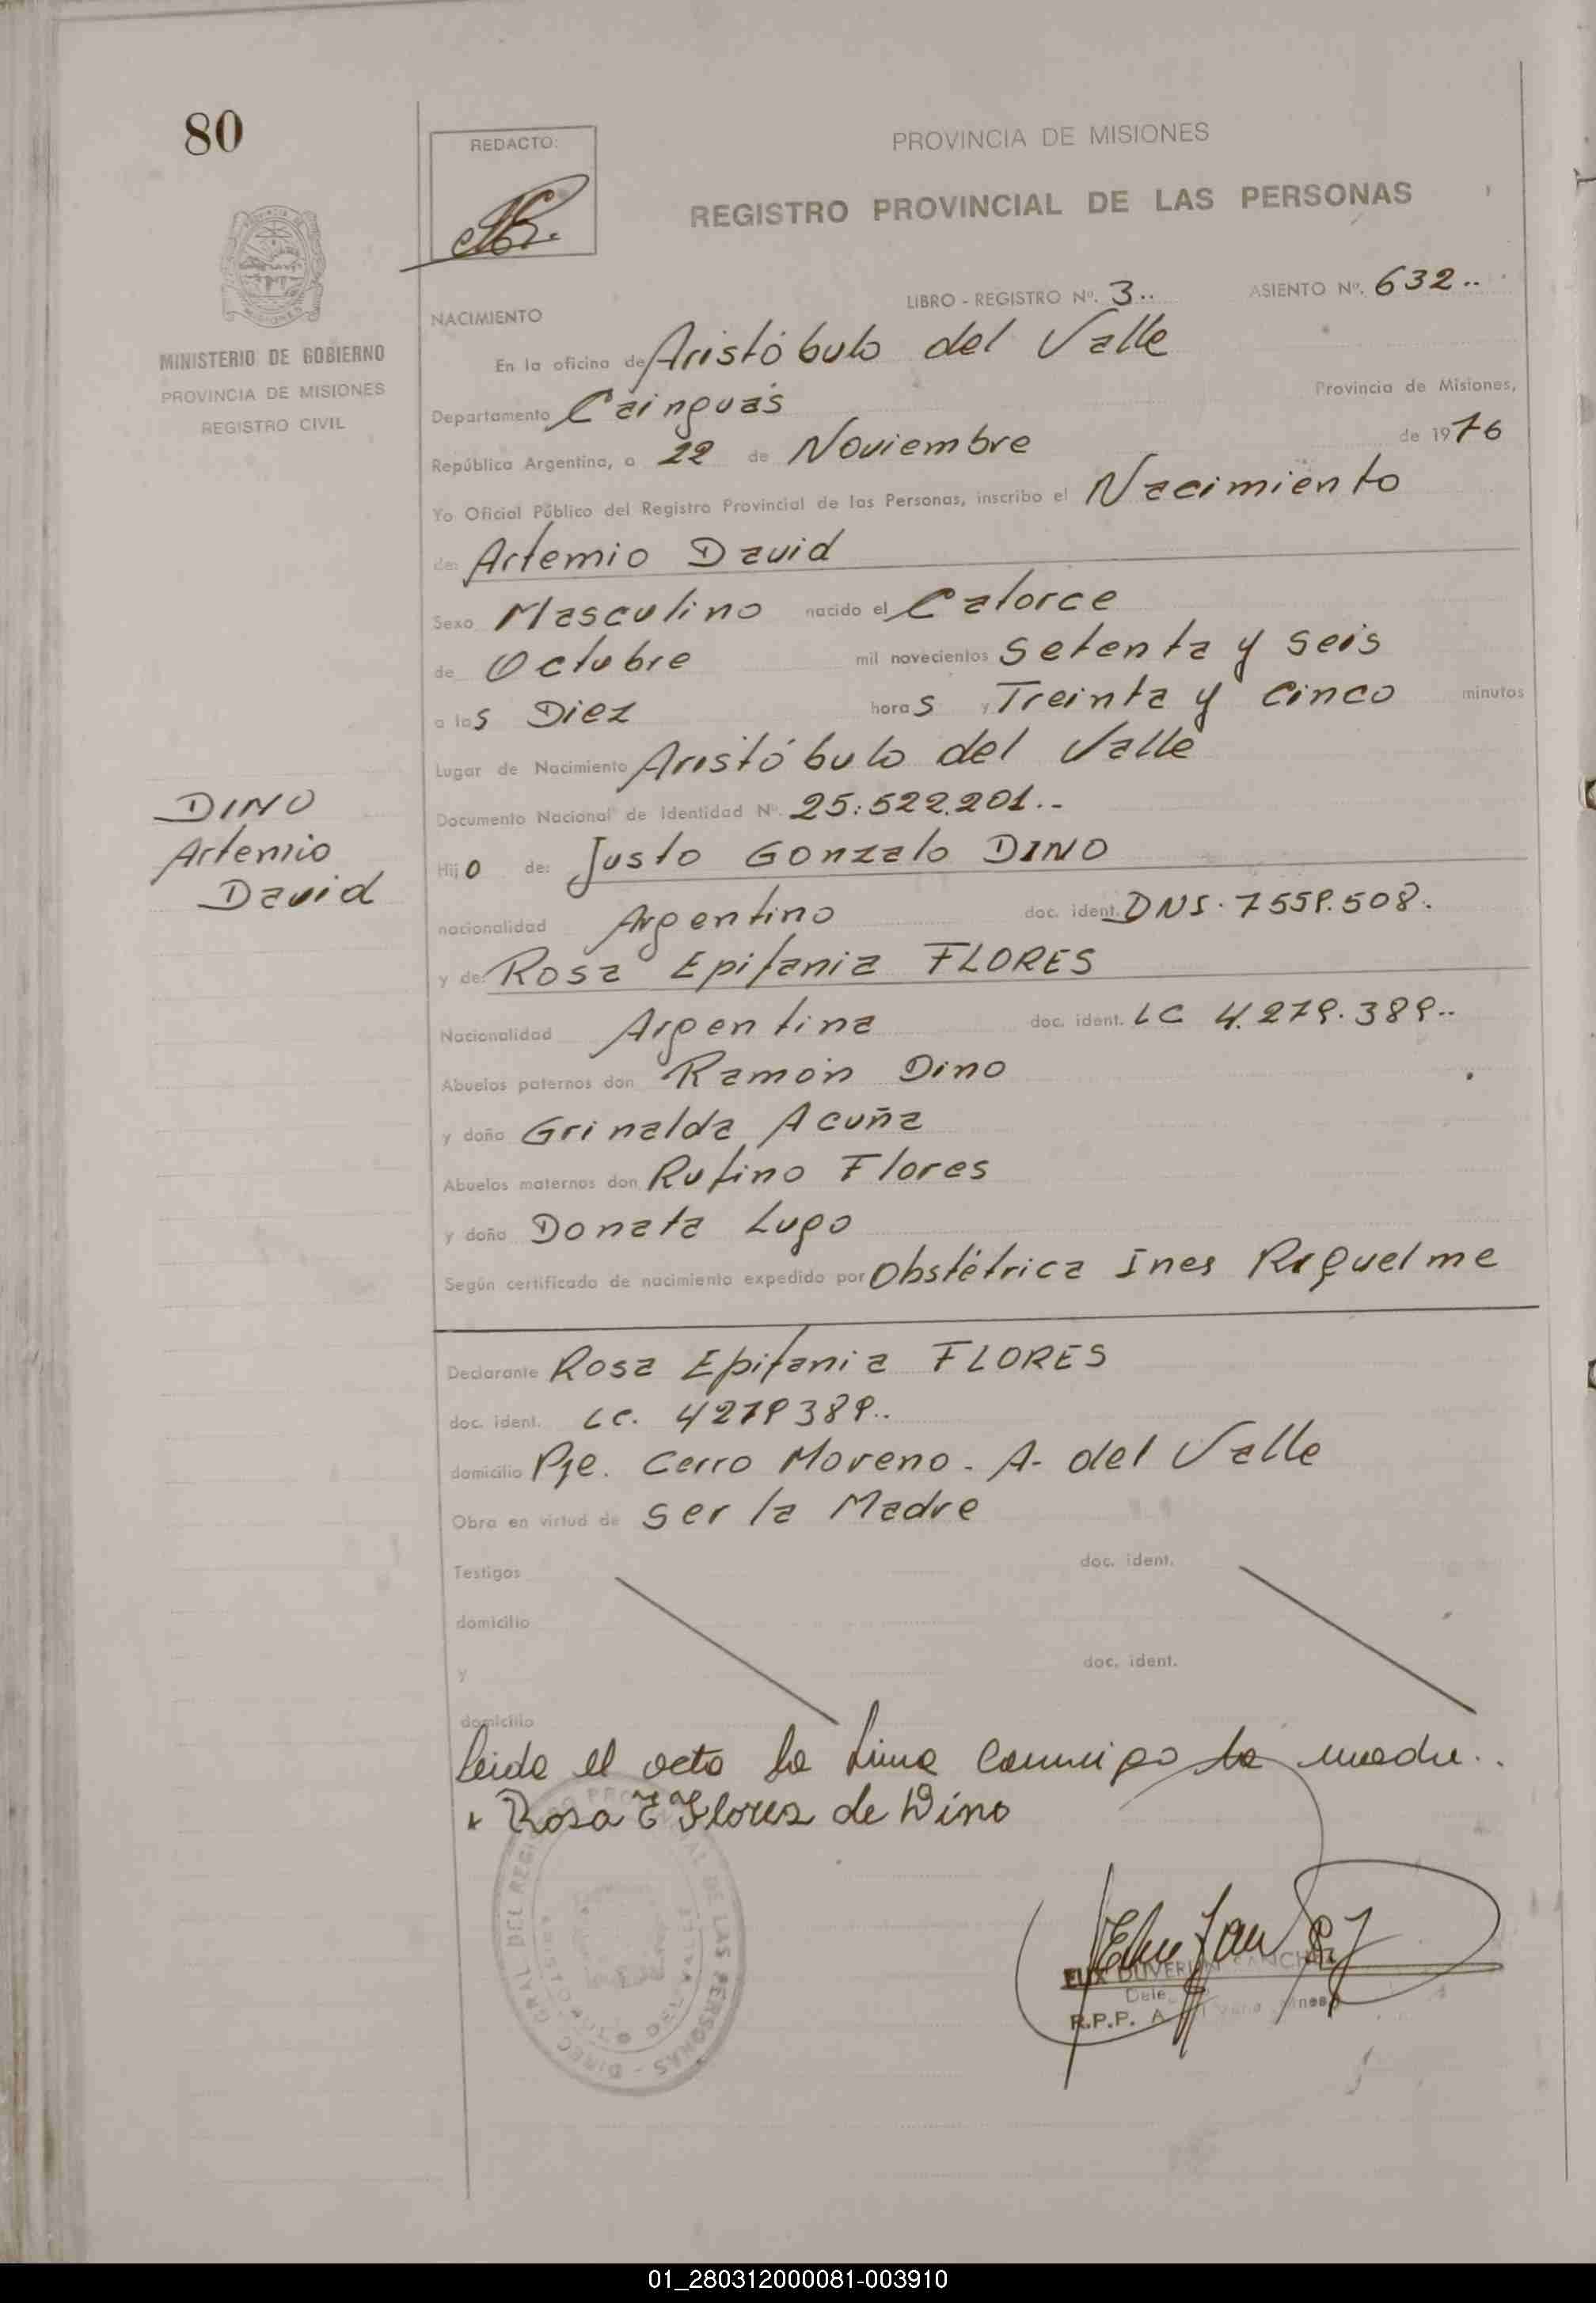 80
REDACTO:
PROVINCIA DE MISIONES
REGISTRO PROVINCIAL DE LAS PERSONAS
MINISTERIO DE GOBIERNO
PROVINCIA DE MISIONES
REGISTRO CIVIL
LIBRO - REGISTRO Nº. 3.. ASIENTO Nº. 632..
NACIMIENTO
En la oficina de Aristóbulo del Valle
Departamento Cainguás Provincia de Misiones,
República Argentina, a 22 de Noviembre de 1976
Yo Oficial Público del Registro Provincial de las Personas, inscribo el Nacimiento
de: Artemio David
Sexo Masculino nacido el Catorce
de Octubre mil novecientos setenta y seis
a las Diez horas y Treinta y cinco minutos
Lugar de Nacimiento Aristóbulo del Valle
Documento Nacional de Identidad Nº. 25.522.201.-
DINO
Artemio
David
Hijo de: Justo Gonzalo DINO
nacionalidad Argentino doc. ident. DNI. 7559.508.
y de: Rosa Epifania FLORES
Nacionalidad Argentina doc. ident. LC 4.279.389..
Abuelos paternos don Ramón Dino
y doña Grinalda Acuña
Abuelos maternos don Rufino Flores
y doña Donata Lugo
Según certificado de nacimiento expedido por Obstétrica Ines Riquelme
Declarante Rosa Epifania FLORES
doc. ident. LC. 4279389..
domicilio Pje. Cerro Moreno - A. del Valle
Obra en virtud de ser la Madre
Testigos doc. ident.
domicilio
y doc. ident.
domicilio
leida el acta la firma conmigo la madre..
Rosa E Flores de Dino
DIREC. GRAL. DEL REGISTRO PROVINCIAL DE LAS PERSONAS
ARISTOBULO DEL VALLE
SANCHEZ
R.P.P. A
01_280312000081-003910